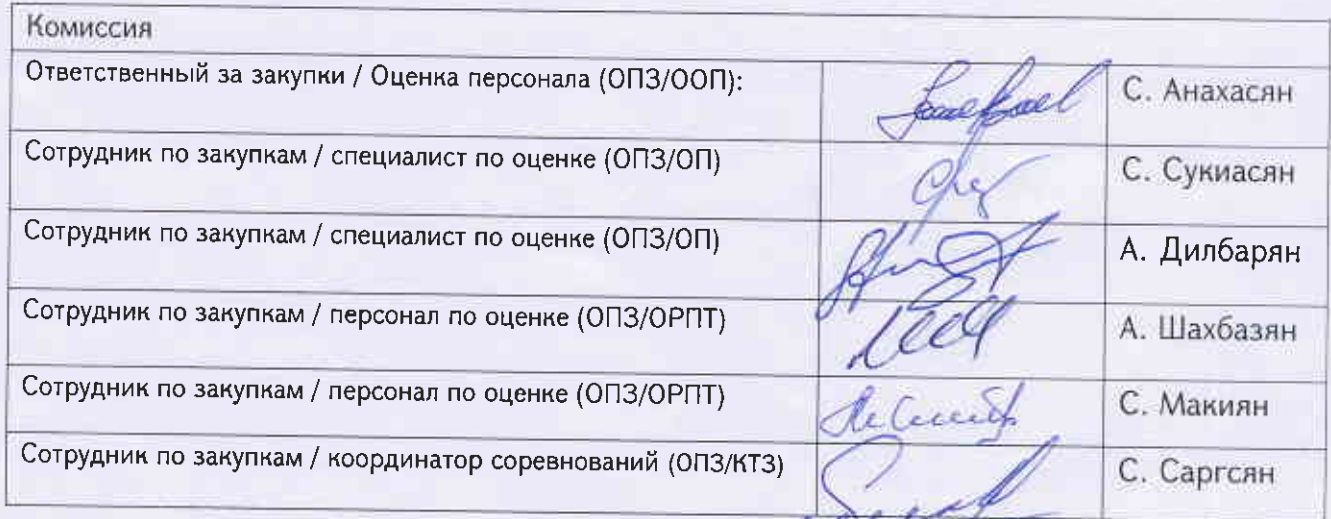 Комиссия
Ответственный за закупки / Оценка персонала (ОПЗ/ООП): С. Анахасян
Сотрудник по закупкам / специалист по оценке (ОПЗ/ОП) С. Сукиасян
Сотрудник по закупкам / специалист по оценке (ОПЗ/ОП) А. Дилбарян
Сотрудник по закупкам / персонал по оценке (ОПЗ/ОРПТ) А. Шахбазян
Сотрудник по закупкам / персонал по оценке (ОПЗ/ОРПТ) С. Макиян
Сотрудник по закупкам / координатор соревнований (ОПЗ/КТЗ) С. Саргсян